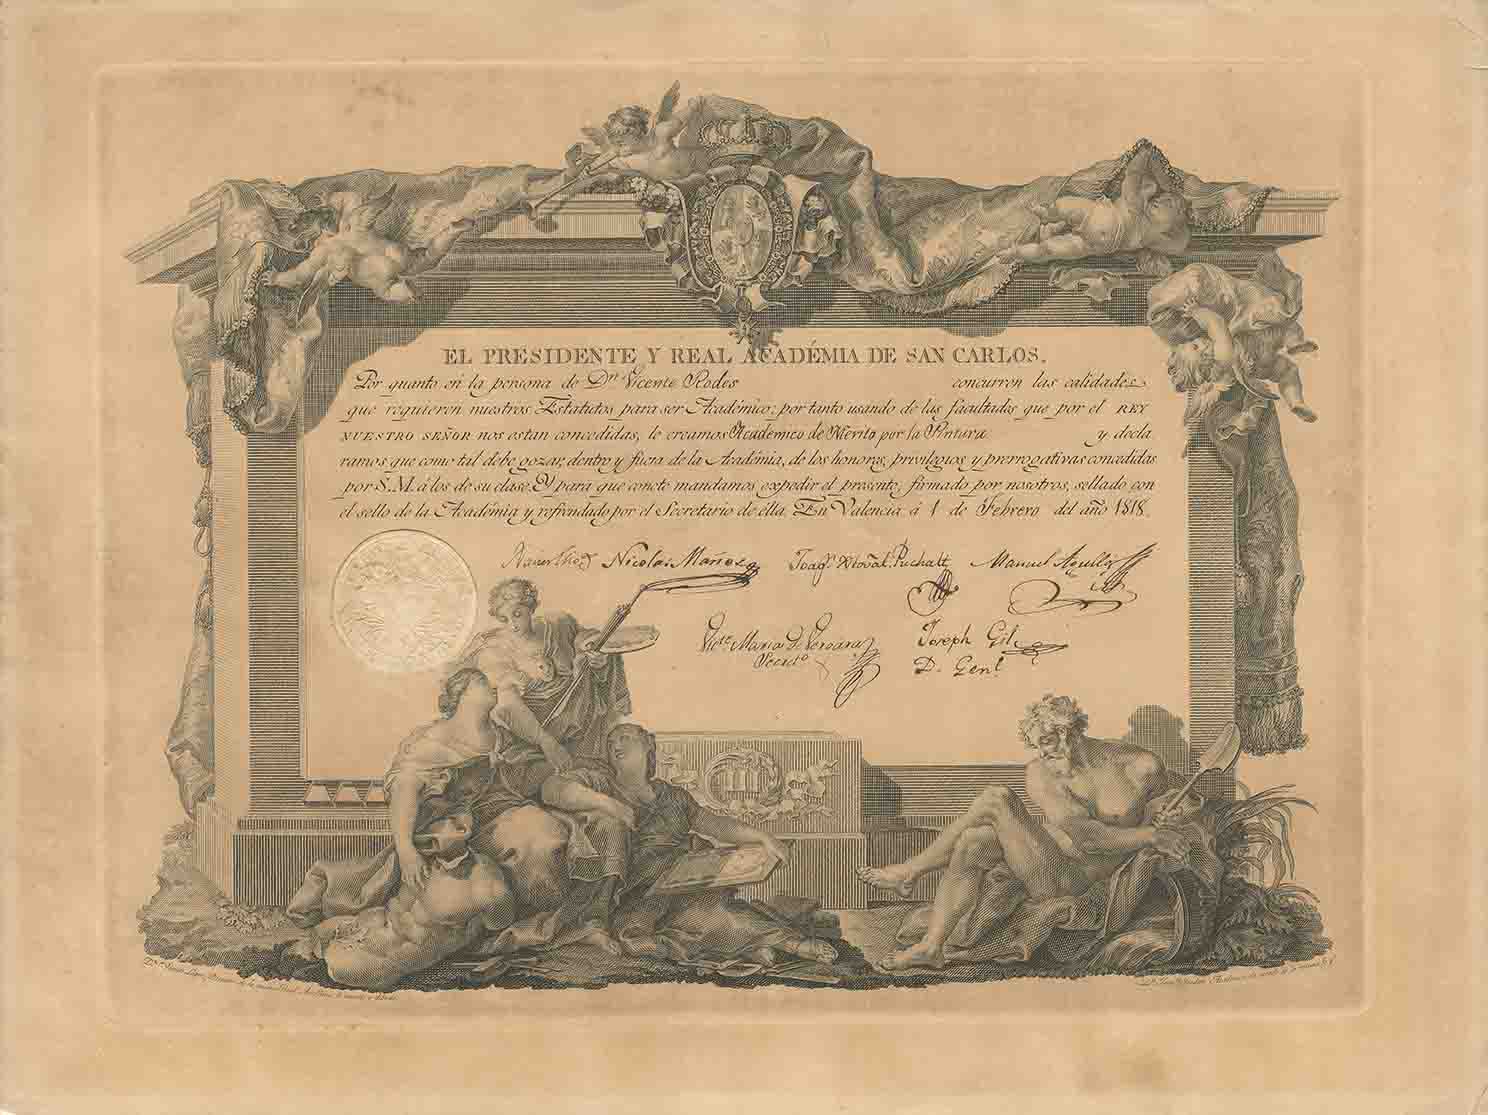 EL PRESIDENTE Y REAL ACADÉMIA DE SAN CARLOS.
Por quanto en la persona de Dn. Vicente Rodes concurren las calidades
que requieren nuestros Estatutos para ser Académico: por tanto usando de las facultades que por el REY
NUESTRO SEÑOR nos estan concedidas, le creamos Academico de Merito por la Pintura y decla
ramos que como tal debe gozar, dentro y fuera de la Académia, de los honores, privilegios y prerrogativas concedidas
por S.M. á los de su clase. Y para que conste mandamos expedir el presente, firmado por nosotros, sellado con
el sello de la Académia y refrendado por el Secretario de élla. En Valencia á 1 de Febrero del año 1818.
Nicolas Mañez Manuel
Victe. Maria D. Vergara Joseph Gil
Secreto. D. Genl.